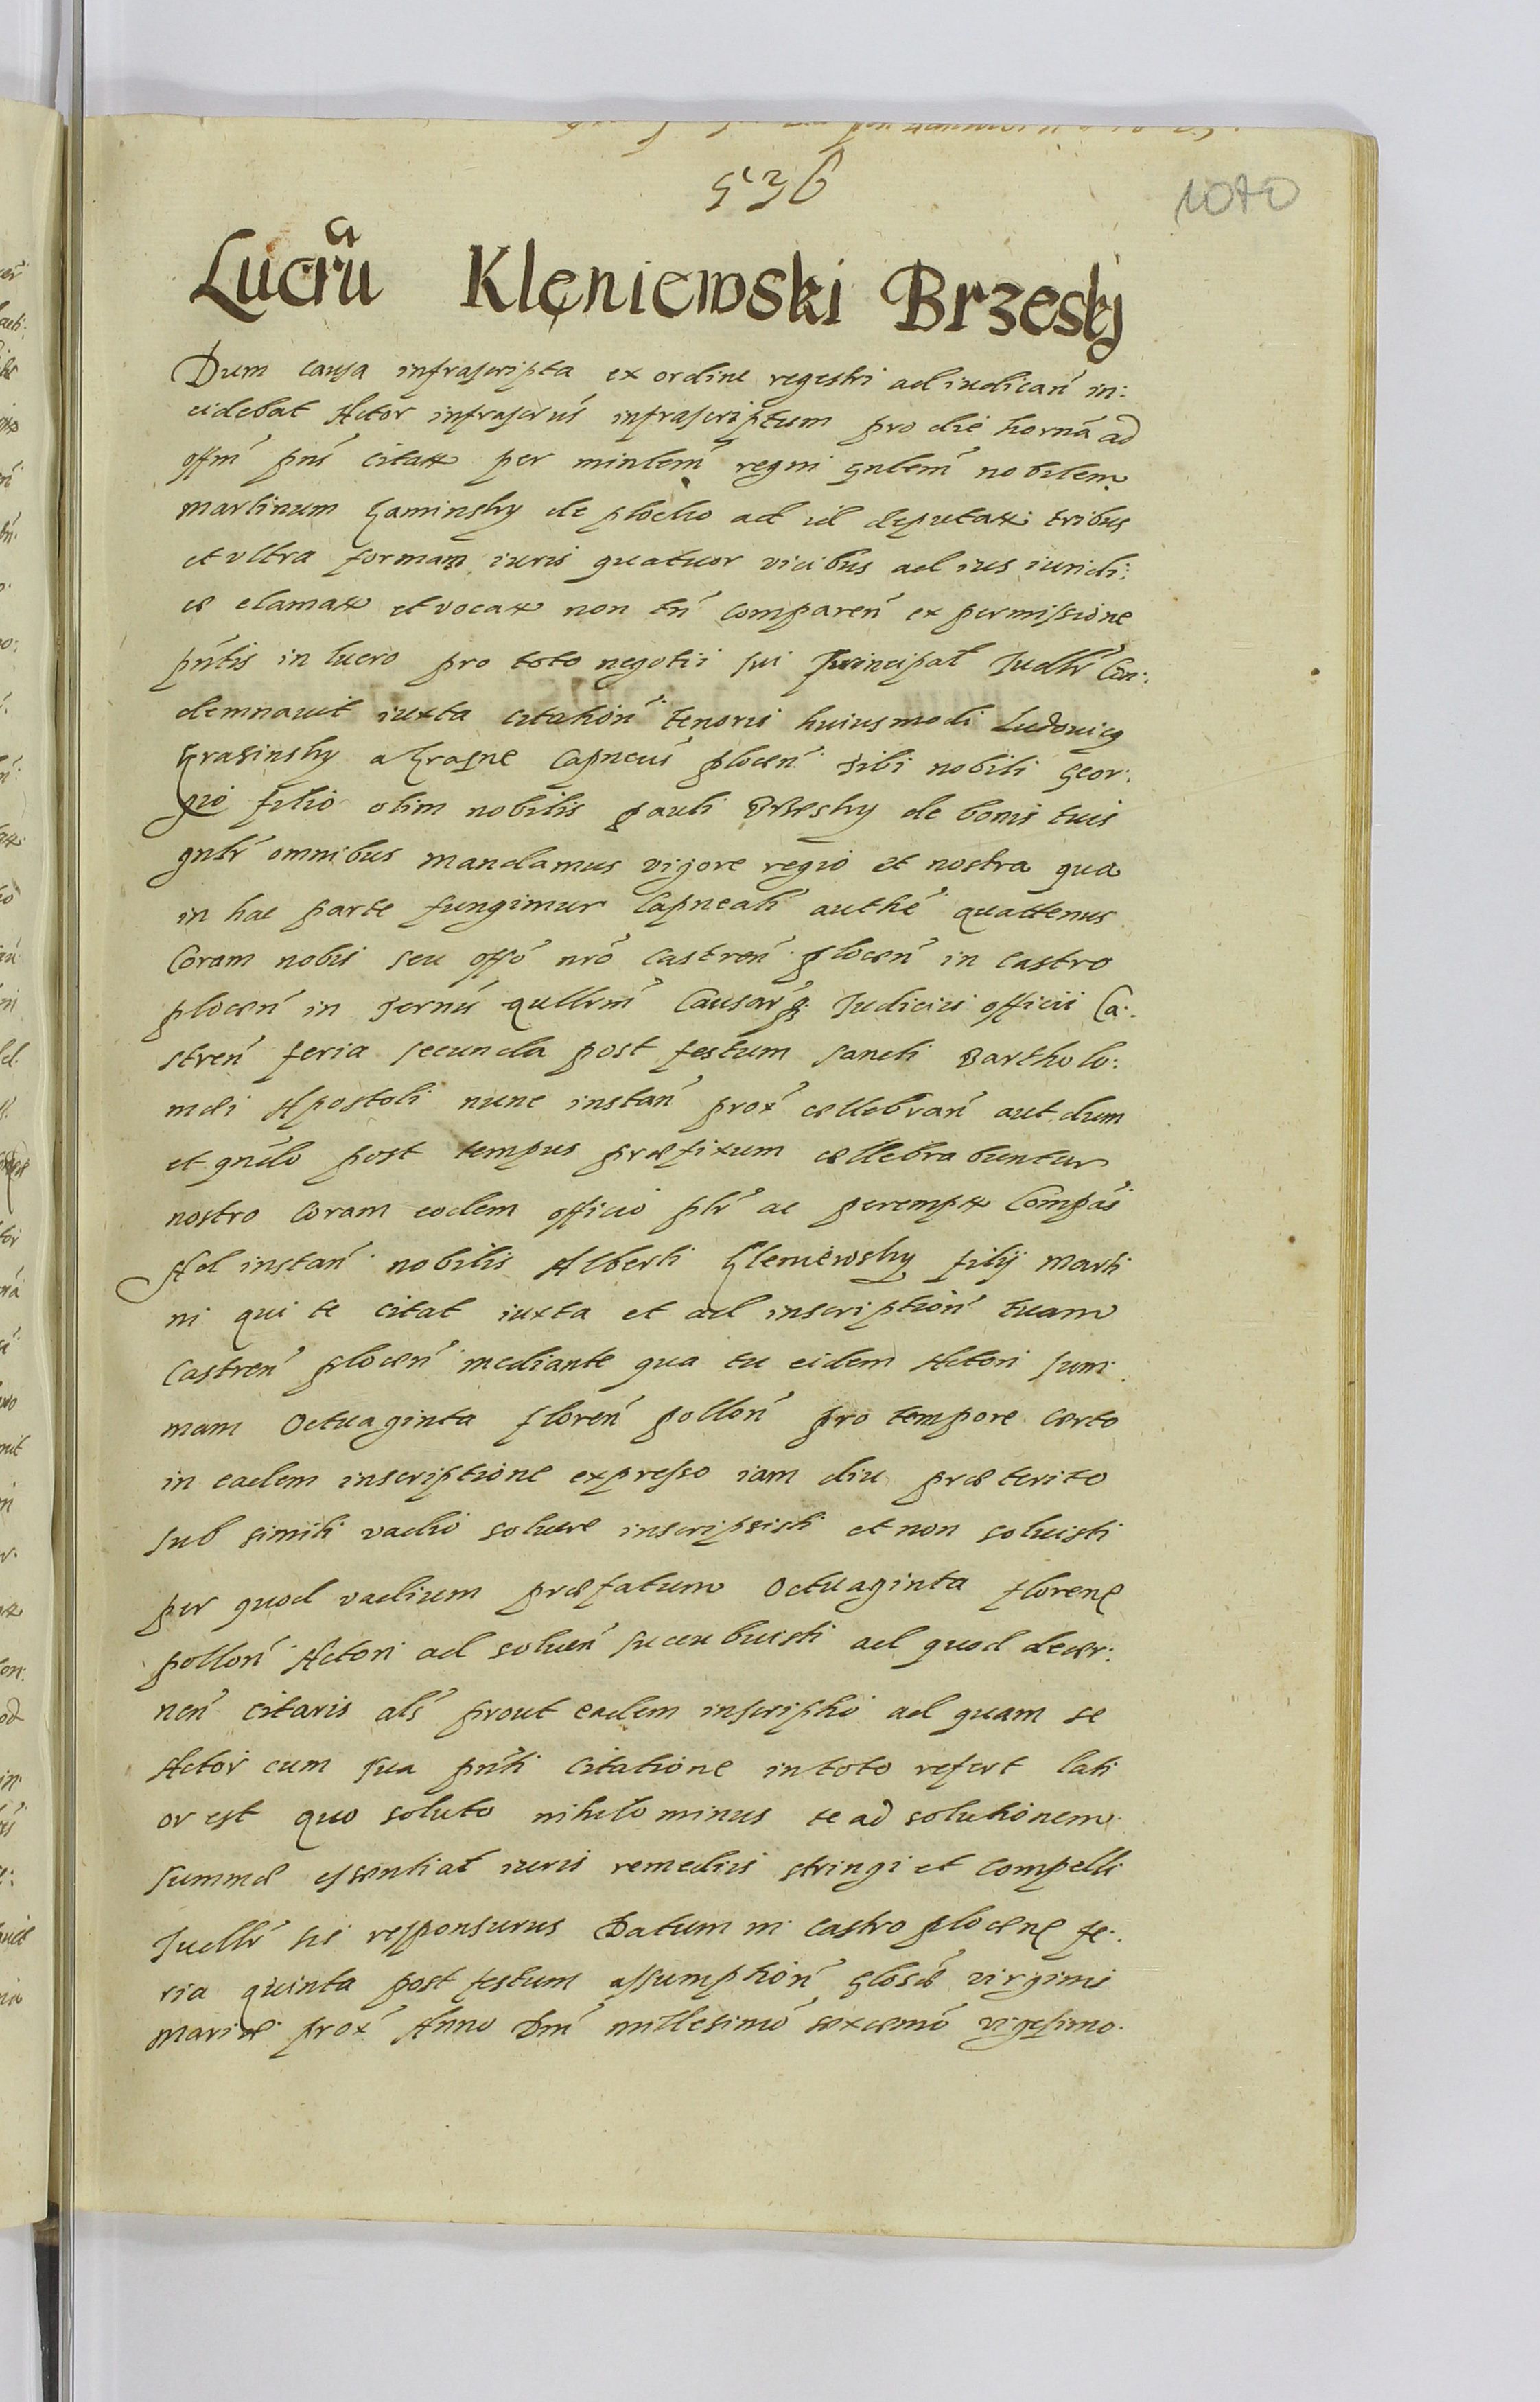 536
1070
Lucru Klęniewski Brzeskj
Dum causa infrascripta ex ordine regestri ad iudican in:
cidebat Actor infrascrus infrascriptum pro die horna ad
offm pns citatt per minlem regni gnlem nobilem
Martinum Kaminsky de plocko ad id deputatt tribus
et ultra formam iuris quatuor vicibus ad ius iuridi:
ce clamatt et vocatt non tn comparen ex permissione
pntis in lucro pro toto negotii sui principal Iudlr Con:
demnavit iuxta citation tenoris huiusmodi Ludovicus
Krasinsky a Krasne Capneus plocen Tibi nobili Geor:
gio filio olim nobilis pauli Brzesky de bonis tuis
gnlr omnibus mandamus vigore regio et nostra qua
in hac parte fungimur Capneali authe quattenus
Coram nobis seu offo nro castren plocen in castro
plocen in Termis qullrm Causarq Iudicii officii Ca:
stren feria secunda post festum sancti Bartholo:
mæi Apostoli nunc instan prox cellebran aut dum
et qndo post tempus præfixum cellebrabuntur
nostro coram eodem officio plr ac perempt Compas
Ad instan nobilis Alberti Kleniewsky filij Marti
ni qui te citat iuxta et ad inscription tuam
Castren plocen mediante qua tu eidem Actori sum
mam Octuaginta floren pollon pro tempore certo
in eadem inscriptione expresso iam diu præterito
sub simili vadio solvere inscripsisti et non solvisti
per quod vadium præfatum Octuaginta floren
pollon Actori ad solven succubuisti ad quod decer:
nen citaris als prout eadem inscriptio ad quam se
Actor cum sua pnti citatione in toto refert lati
or est quo soluto nihilominus te ad solutionem
summæ essential iuris remediis stringi et compelli
Iudlr sis responsurus Datum in castro plocen fe:
ria quinta post festum assumption glosæ virginis
Mariæ prox Anno Dni millesimo sexcemo vigesimo.